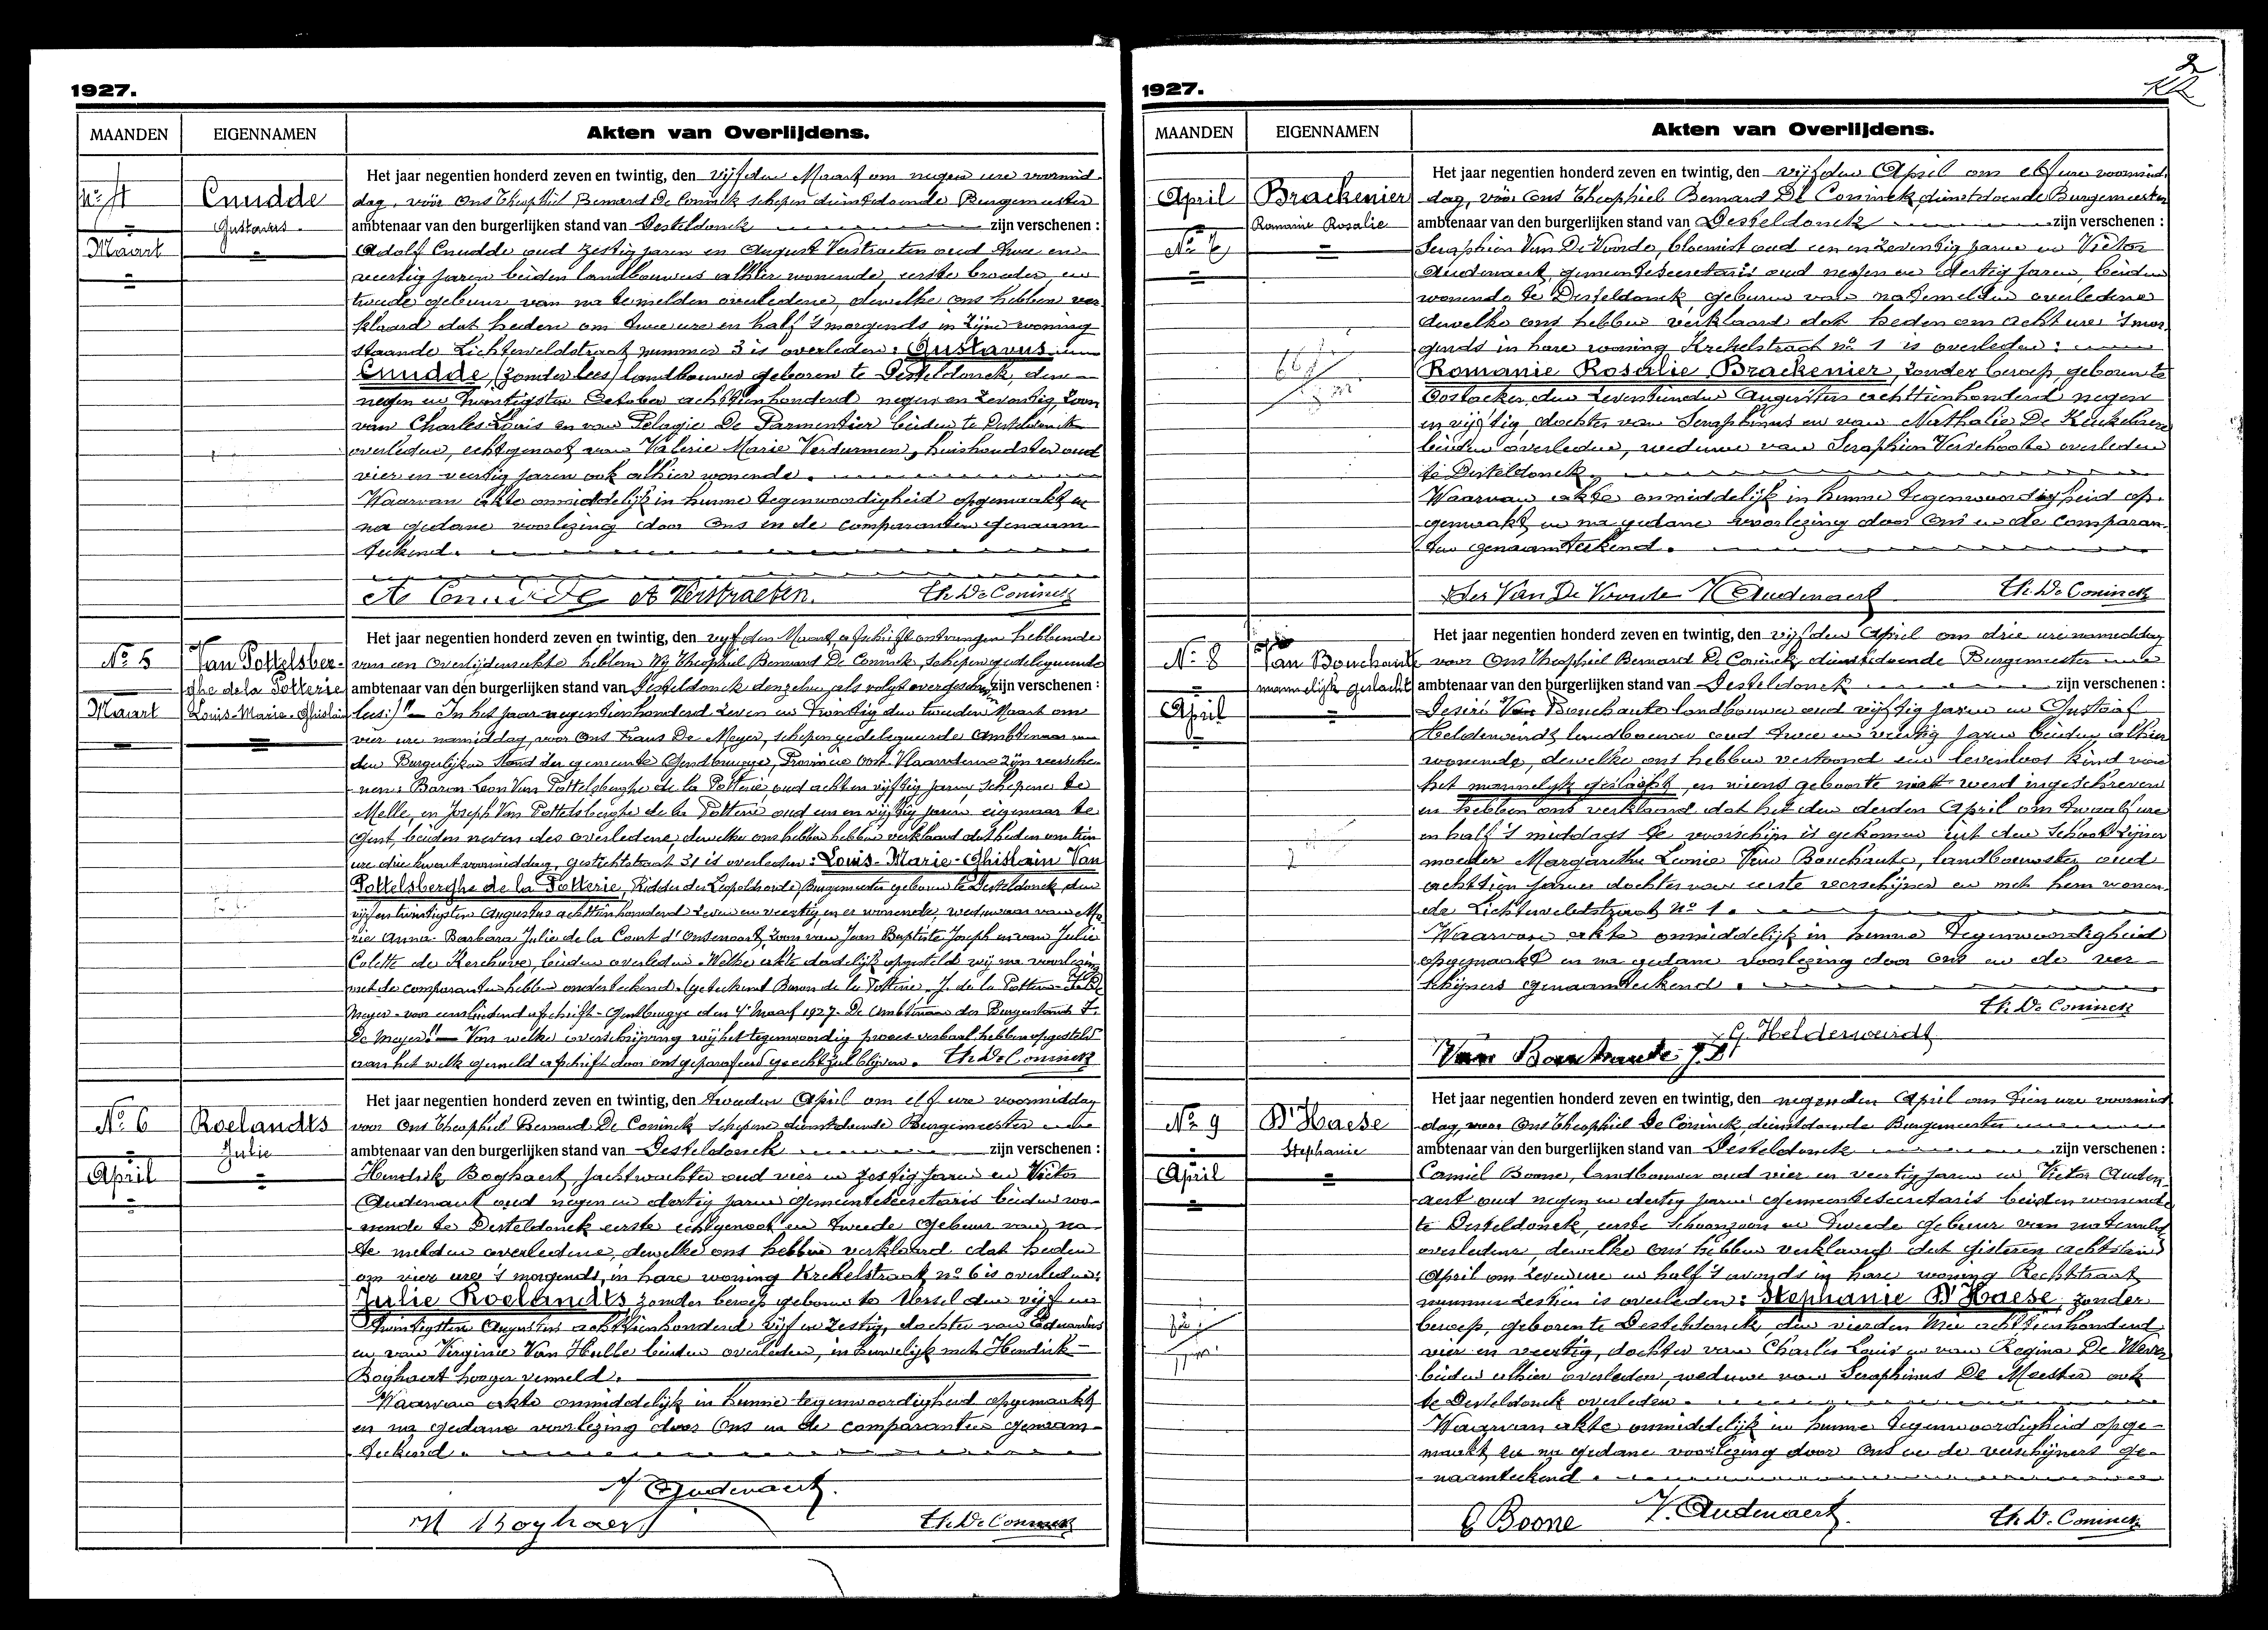 1927.
MAANDEN
EIGENNAMEN
Akten van Overlijdens.
No 4
Cnudde
Gustavus
Maart
Het jaar negentien honderd zeven en twintig, den vijfden Maart om negen ure voormid-
dag, vóór Ons Theophiel Bernard De Coninck schepen dienstdoende Burgemeester
ambtenaar van den burgerlijken stand van Desteldonck zijn verschenen :
Adolf Cnudde oud zestig jaren en August Verstraeten oud twee en
veertig jaren beiden landbouwers alhier wonende, eerste broeder en
tweede gebuur van na te melden overledene, dewelke ons hebben ver-
klaard dat heden om twee ure en half 's morgends in zijne woning
staande Lichterveldstraat nummer 3 is overleden: Gustavus
Cnudde, (zonder lees) landbouwer geboren te Desteldonck, den
negen en twintigsten October achttienhonderd negen en zeventig, zoon
van Charles Louis en van Pelagie De Parmentier beiden te Desteldonck
overleden, echtgenoot van Valerie Marie Verdurmen, huishoudster oud
vier en veertig jaren ook alhier wonende.
Waarvan akte onmiddelijk in hunne tegenwoordigheid opgemaakt en
na gedane voorlezing door Ons en de comparanten genaam-
teekend.
A Cnudde A Verstraeten. Th. De Coninck
No 5
Van Pottelsber-
ghe de la Potterie
Louis-Marie-Ghislain
Maart
Het jaar negentien honderd zeven en twintig, den vijfden Maart afschrift ontvangen hebbende
van een overlijdensakte hebben Wij Theophiel Bernard De Coninck, schepen gedelegueerde
ambtenaar van den burgerlijken stand van Desteldonck dezelve als volgt overgeschr. zijn verschenen :
lees:)" — In het jaar negentienhonderd zeven en twintig den tweeden Maart om
vier ure namiddag, voor Ons Frans De Meyer, schepen gedelegueerde Ambtenaar van
den Burgerlijken Stand der gemeente Gendbrugge, Provincie Oost-Vlaanderen zijn versche-
nen: Baron Leon Van Pottelsberghe de la Potterie, oud acht en vijftig jaren, schepene te
Melle, en Joseph Van Pottelsberghe de la Potterie oud een en vijftig jaren eigenaar te
Gent, beiden neven des overledene, dewelke ons hebben hebben verklaard dat heden om tien
ure drie kwart voormiddag, Gestichtstraat 31 is overleden: Louis-Marie-Ghislain Van
Pottelsberghe de la Potterie, Ridder der Leopoldsorde, Burgemeester geboren te Desteldonck, den
vijf en twintigsten Augustus achttienhonderd zeven en veertig, en er wonende, weduwaar van Ma-
rie Anna-Barbara Julie de la Court d'Onsenoort, zoon van Jean Baptiste Joseph en van Julie
Colette de Kerchove, beiden overleden. Welke akte dadelijk opgesteld wij na voorlezing
met de comparanten hebben onderteekend. (geteekend Baron de la Potterie. J. de la Potterie
Meyer - voor eensluidend afschrift - Gendbrugge den 4 Maart 1927. De Ambtenaar der Burgerstand F.
De Meyer." — Van welke overschrijving wij het tegenwoordig proces-verbaal hebben opgesteld
aan het welk gemeld afschrift door ons geparafeerd gehecht zal blijven. Th. De Coninck
No 6
Roelandts
Julie
April
Het jaar negentien honderd zeven en twintig, den tweeden April om elf ure voormiddag
voor Ons Theophiel Bernard De Coninck schepene dienstdoende Burgemeester
ambtenaar van den burgerlijken stand van Desteldonck zijn verschenen :
Hendrik Boghaert, jachtwachter oud vier en zestig jaren en Victor
Audenaert oud negen en dertig jaren gemeentesecretaris beiden wo-
nende te Desteldonck eerste echtgenoot en tweede gebuur van na
te melden overledene, dewelke ons hebben verklaard dat heden
om vier ure 's morgends, in hare woning Krekelstraat no 6 is overleden:
Julie Roelandts zonder beroep geboren te Ursel den vijf en
twintigsten Augustus achttienhonderd vijf en zestig, dochter van Eduardus
en van Virginie Van Hulle beiden overleden, in huwelijk met Hendrik
Boghaert hooger vermeld.
Waarvan akte onmiddelijk in hunne tegenwoordigheid opgemaakt
en na gedane voorlezing door Ons en de comparanten genaam-
teekend.
V Audenaert.
H Boghaert Th. De Coninck
1927.
2
MAANDEN
EIGENNAMEN
Akten van Overlijdens.
April
Brackenier
Romanie Rosalie
No 7
Het jaar negentien honderd zeven en twintig, den vijfden April om elf ure voormid-
dag, vóór Ons Theophiel Bernard De Coninck, dienstdoende Burgemeester
ambtenaar van den burgerlijken stand van Desteldonck zijn verschenen :
Seraphien Van De Voorde, bloemist oud een en zeventig jaren en Victor
Audenaert, gemeentesecretaris oud negen en dertig jaren, beiden
wonende te Desteldonck geburen van na te melden overledene
dewelke ons hebben verklaard dat heden om acht ure 's mor-
gends in hare woning Krekelstraat no 1 is overleden:
Romanie Rosalie Brackenier, zonder beroep, geboren te
Oostacker, den zeventienden Augustus achttienhonderd negen
en vijftig, dochter van Seraphinus en van Nathalie De Keukelaere
beiden overleden, weduwe van Seraphien Verschoote overleden
te Desteldonck.
Waarvan akte onmiddelijk in hunne tegenwoordigheid op-
gemaakt en na gedane voorlezing door Ons en de comparan-
ten genaamteekend.
Ser Van De Voorde V Audenaert Th. De Coninck
No 8
Van Bouchaute
mannelijk geslacht
April
Het jaar negentien honderd zeven en twintig, den vijfden April om drie ure namiddag
voor Ons Theophiel Bernard De Coninck dienstdoende Burgemeester
ambtenaar van den burgerlijken stand van Desteldonck zijn verschenen :
Desiré Van Bouchaute landbouwer oud vijftig jaren en Gustaaf
Helderweirdt landbouwer oud twee en veertig jaren beiden alhier
wonende, dewelke ons hebben vertoond een levenloos kind van
het mannelijk geslacht, en wiens geboorte niet werd ingeschreven
en hebben ons verklaard dat het den derden April om twaalf ure
en half 's middags te voorschijn is gekomen uit den schoot zijner
moeder Margaretha Leonie Van Bouchaute, landbouwster oud
achttien jaren dochter van eerste verschijner en met hem wonen-
de Lichterveldstraat No 1.
Waarvan akte onmiddelijk in hunne tegenwoordigheid
opgemaakt en na gedane voorlezing door Ons en de ver-
schijners genaamteekend.
Th. De Coninck
G. Helderweirdt
Van Bouchaute
No 9
D'Haese
Stephanie
April
Het jaar negentien honderd zeven en twintig, den negenden April om tien ure voormid-
dag, voor Ons Theophiel De Coninck, dienstdoende Burgemeester
ambtenaar van den burgerlijken stand van Desteldonck zijn verschenen :
Camiel Boone, landbouwer oud vier en veertig jaren en Victor Auden-
aert oud negen en dertig jaren gemeentesecretaris beiden wonende
te Desteldonck, eerste schoonzoon en tweede gebuur van natemelden
overledene, dewelke ons hebben verklaard dat gisteren achtsten
April om zeven ure en half 's avonds in hare woning Rechtstraat
nummer zestien is overleden: Stephanie D'Haese, zonder
beroep, geboren te Desteldonck, den vierden Mei achttienhonderd
vier en veertig, dochter van Charles Louis en van Regina De Wever
beiden alhier overleden, weduwe van Seraphinus De Meester ook
te Desteldonck overleden.
Waarvan akte onmiddelijk in hunne tegenwoordigheid opge-
maakt en na gedane voorlezing door Ons en de verschijners ge-
naamteekend.
C Boone V. Audenaert. Th. De Coninck